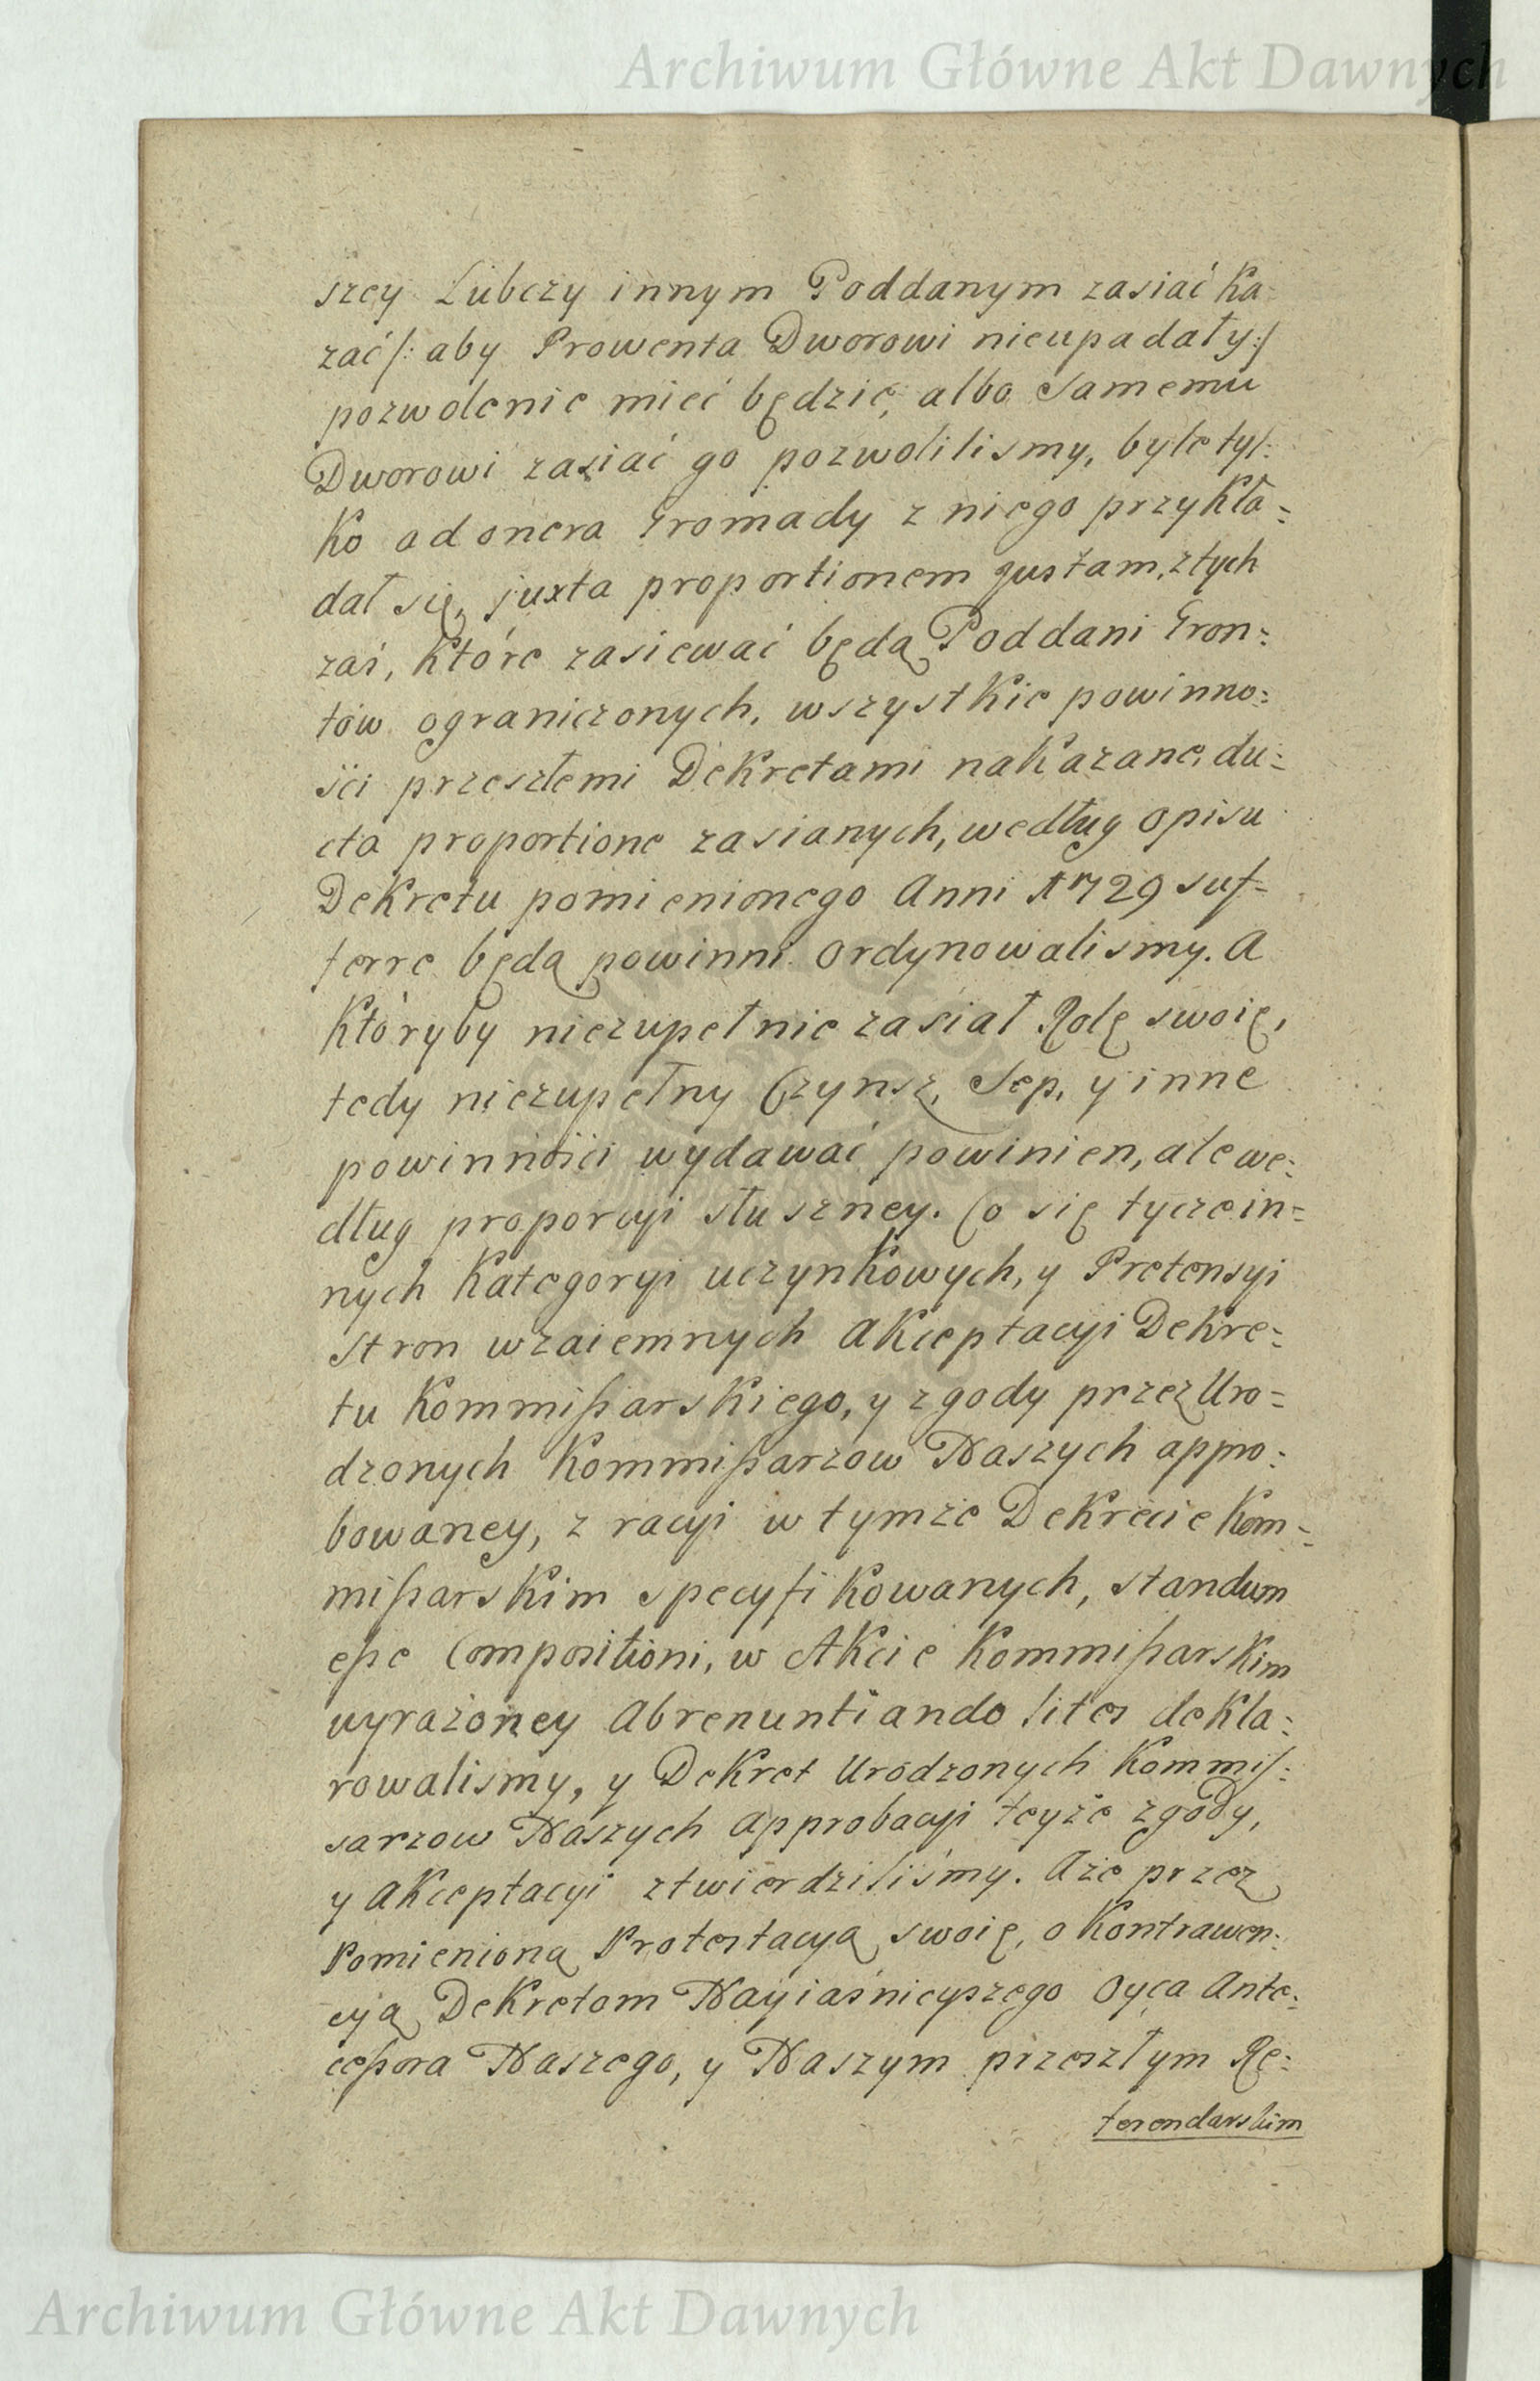 Archiwum Główne Akt Dawnych
szey Lubczy innym Poddanym zasiać ka-
zać /: aby Prowenta Dworowi nieupadały :/
pozwolenie mieć będzie, albo samemu
Dworowi zasiać go pozwolilismy, byle tyl:
ko ad onera Gromady z niego przykła=
dał się, juxta proportionem justam, z tych
zaś, które zasiewać będą Poddani Gron=
tów ograniczonych, wszystkie powinno=
ści przeszłemi Dekretami nakazane, du=
cta proportione zasianych, według opisu
Dekretu pomienionego Anni 1729 suf=
ferre będą powinni ordynowalismy. A
któryby niezupełnie zasiał Rolę swoię,
tedy niezupełny Czynsz, Sep, y inne
powinności wydawać powinien, ale we=
dług proporcyi słuszney. Co się tycze in=
nych kategoryi uczynkowych, y Pretensyi
stron wzaiemnych Akceptacyi Dekre=
tu Kommißarskiego, y zgody przez Uro=
dzonych Kommißarzow Naszych appro=
bowaney, z racyi w tymże Dekrecie Kom=
mißarskim specyfikowanych, standum
eße Compositioni, w Akcie Kommißarskim
wyrażoney Abrenuntiando lites dekla=
rowalismy, y Dekret Urodzonych Kommis=
sarzow Naszych approbacyi teyże zgody,
y Akceptacyi ztwierdziliśmy. A że przez
Pomienioną Protestacyą swoię, o Kontrawen=
cyą Dekretom Nayiaśnieyszego Oyca Ante=
ceßora Naszego, y Naszym przeszłym Re=
ferendarskim
Archiwum Główne Akt Dawnych